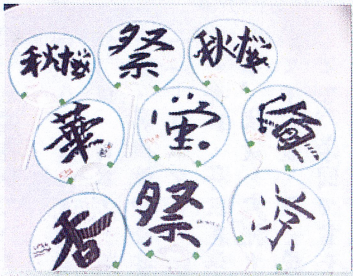 秋桜 祭 秋桜
華 蛍 海
香 祭 涼